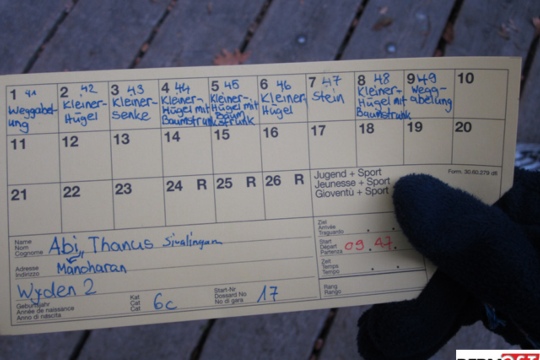 1 41 2 42 3 43 4 44 5 45 6 46 7 47 8 48 9 49 10
Weggabel- Kleiner- Kleiner- Kleiner- Kleiner- Kleiner Stein Kleiner- Wegg-
ung Hügel Senke Hügel mit Hügel mit Hügel Hügel mit abelung
Baumstrunk Baum strunk Baumstrunk
11 12 13 14 15 16 17 18 19 20
21 22 23 24 R 25 R 26 R Jugend + Sport Form. 30.60.279 dfi
Jeunesse + Sport
Gioventù + Sport
Name
Nom
Cognome
Abi, Thanus Sivalingam
Adresse
Indirizzo
Manoharan
Wyden 2
Geburtsjahr
Année de naissance
Anno di nascita
Kat
Cat
Cat
6c
Start-Nr
Dossard No
No di gara
17
Ziel
Arrivée
Traguardo
Start
Départ
Partenza
09.47
Zeit
Temps
Tempo
Rang
Rango